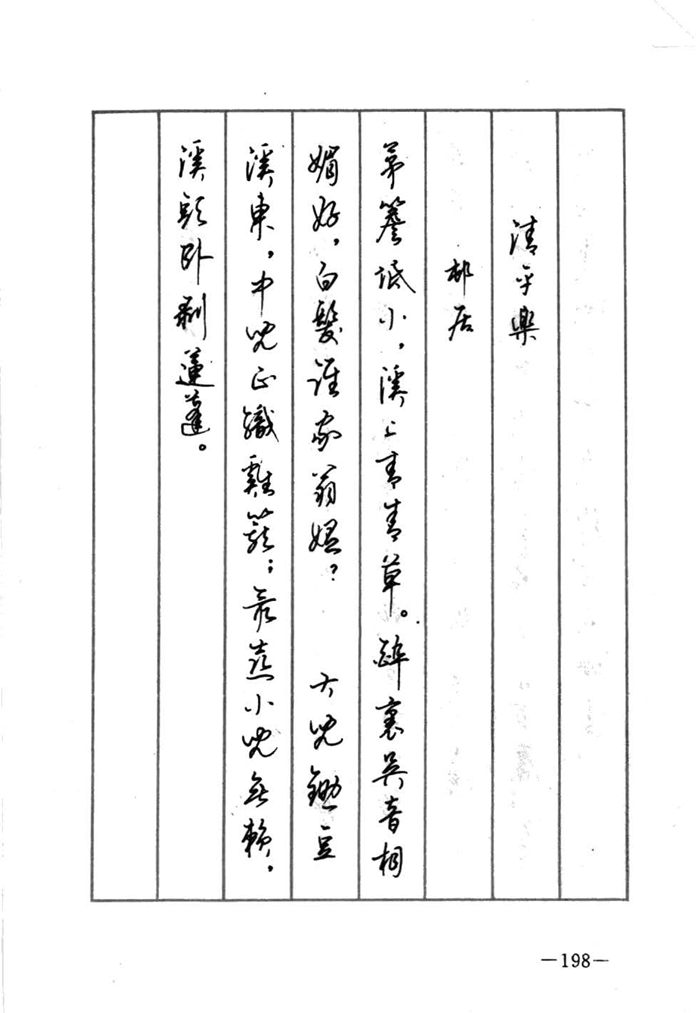 清平樂
邨居
茅簷低小，溪上青青草。醉裏吳音相
媚好，白髮誰家翁媼？　大兒鋤豆
溪東，中兒正織雞籠；最喜小兒無賴，
溪頭臥剝蓮蓬。
—198—